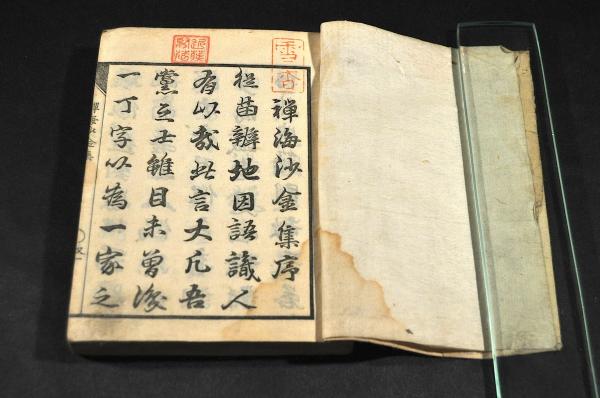 禪海沙金集序
從苗辨地因語識人
有以哉此言大凡吾
黨之士雖目未曾
一丁字以為一家之